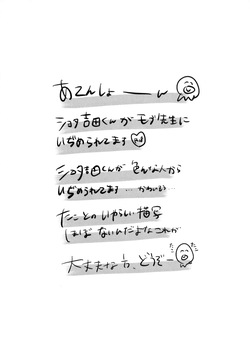 あてんしょーーん
ショタ吉田くんが モブ先生に
いぢめられてます
ショタ吉田くんが 色んな人から
いぢめられてます … かわいい
たことのいやらしい描写
ほぼ ないんだよなこれが
たこ だこ
大丈夫な方、どうぞー